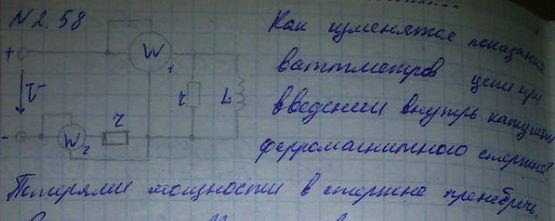 N 2.58
Как изменятся показания
ваттметров цепи при
введении внутрь катушки
ферромагнитного стержня?
Потерями мощности в стержне пренебречь.
+
W
1
U
r
L
-
W
2
r